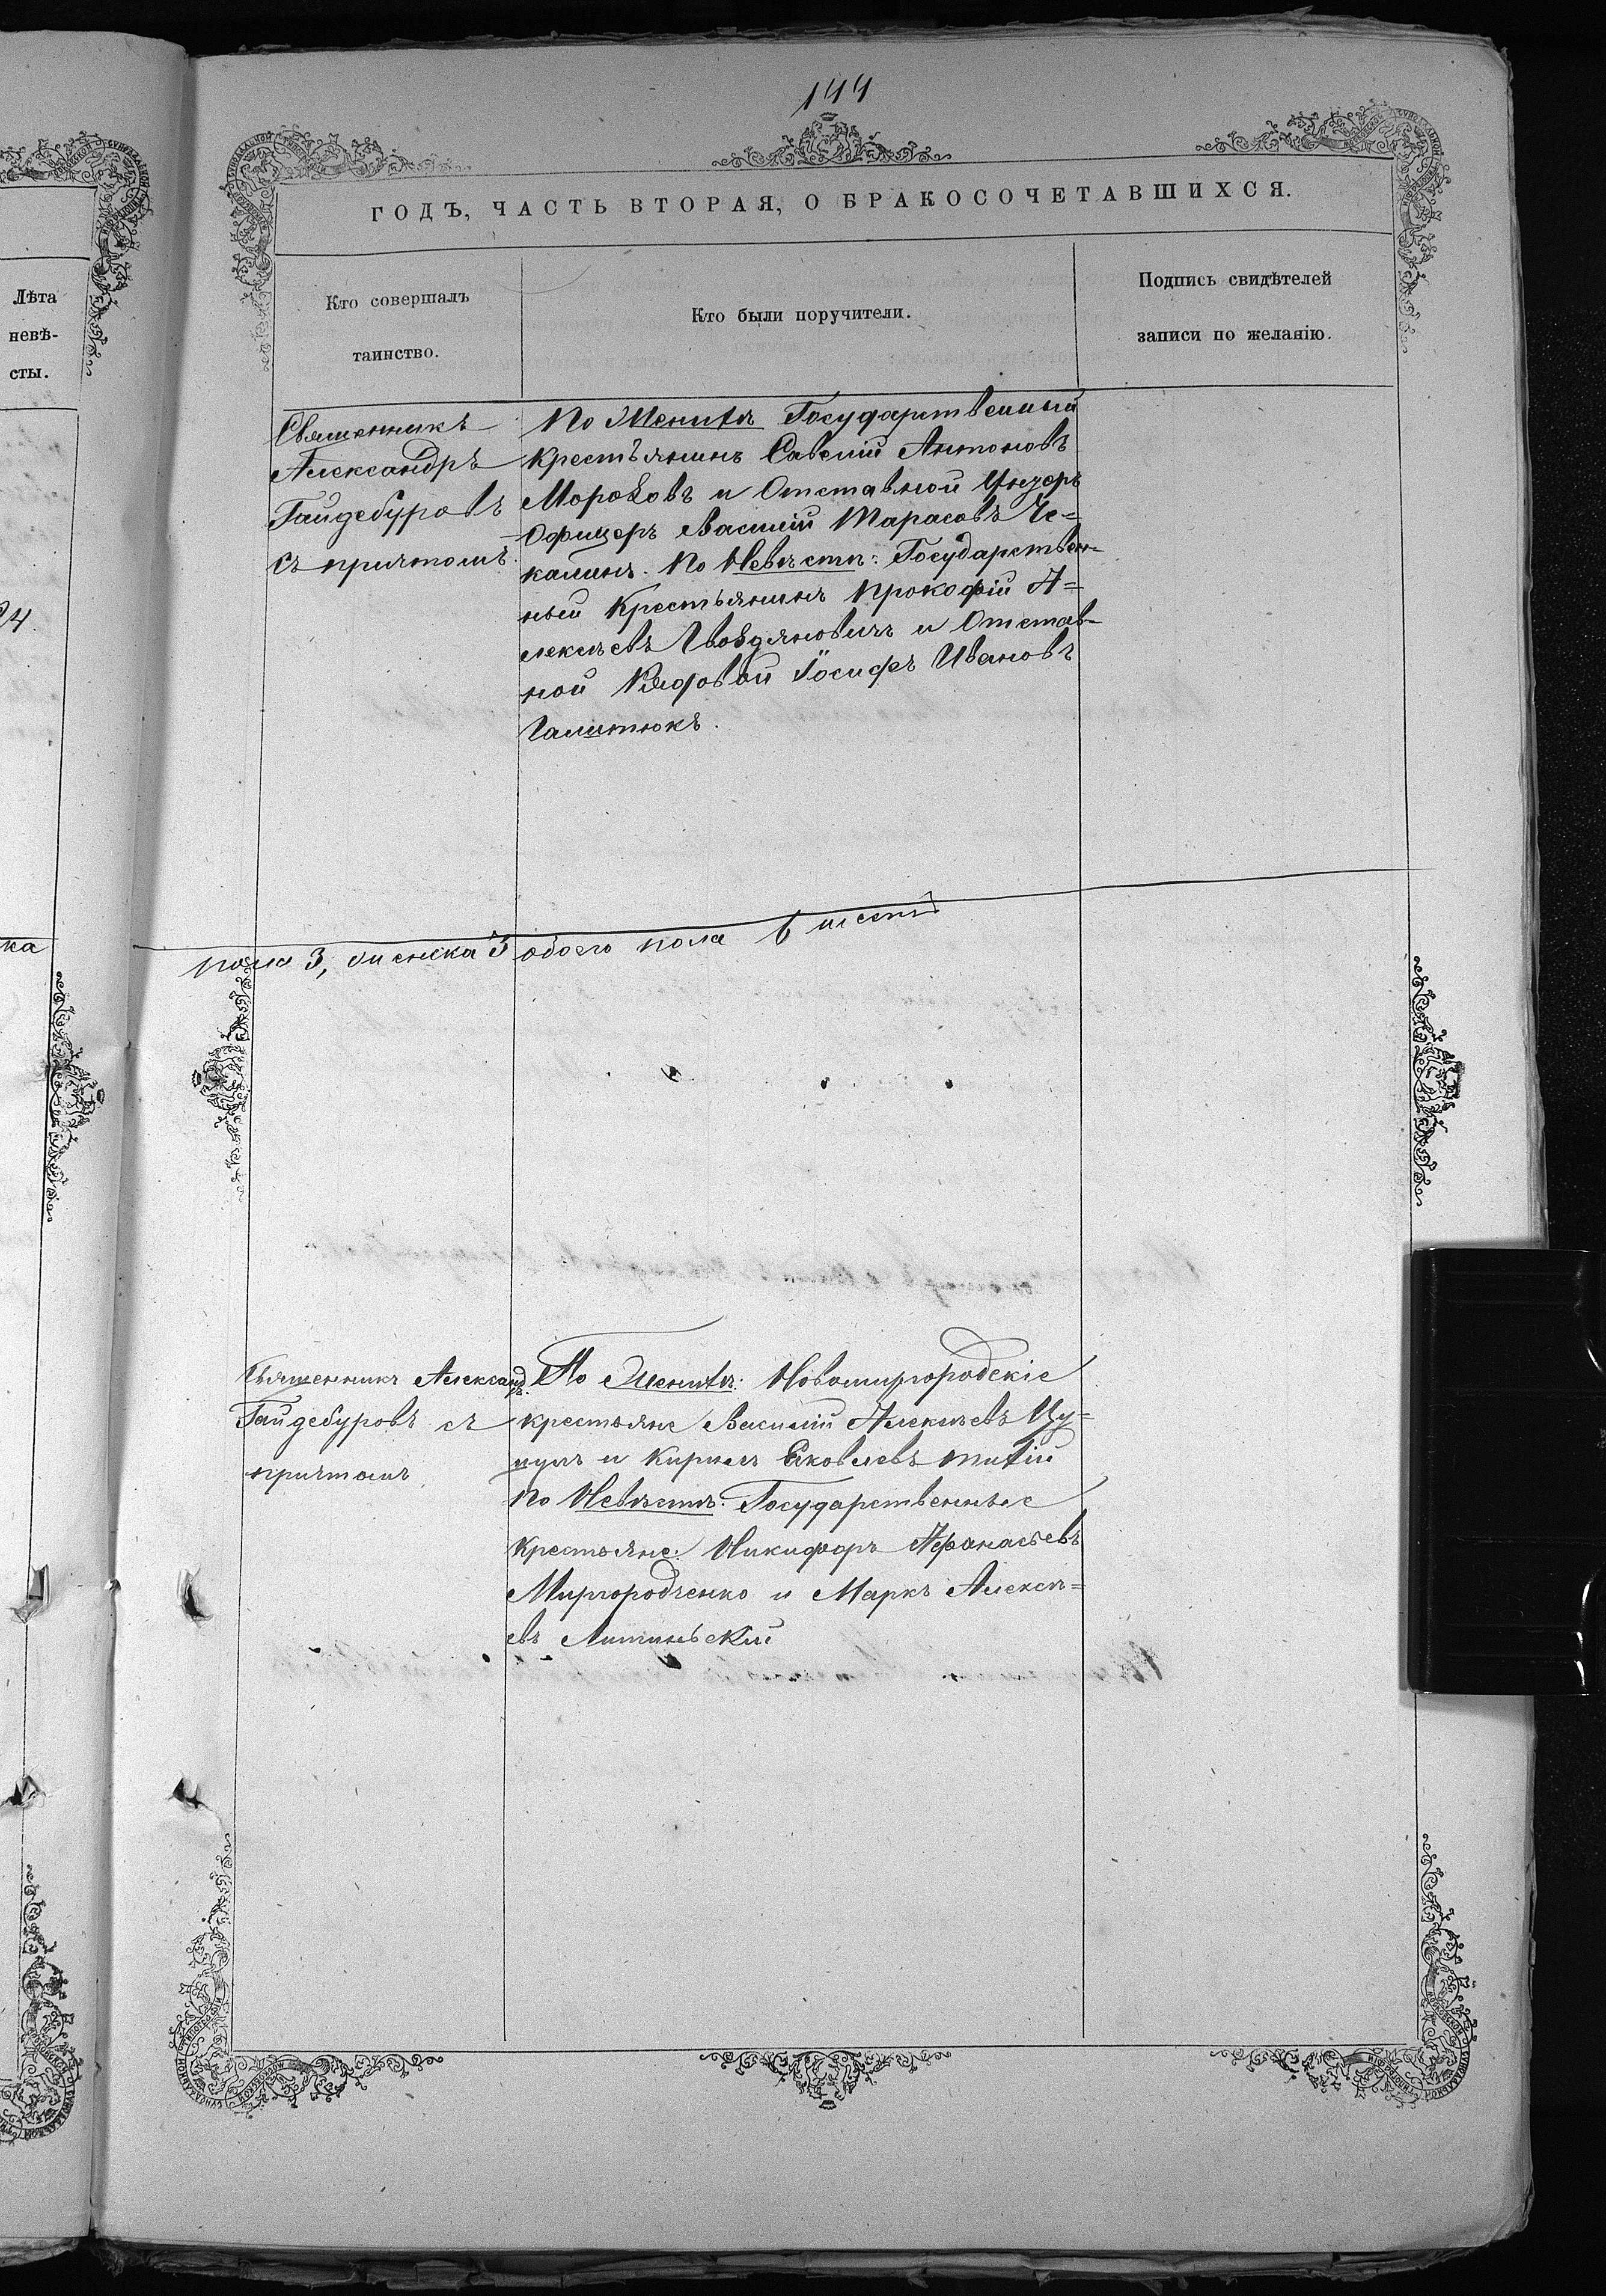 144
ГОДЪ, ЧАСТЬ ВТОРАЯ, О БРАКОСОЧЕТАВШИХСЯ.
Лѣта
невѣ-
сты.
Кто совершалъ
таинство.
Кто были поручители.
Подпись свидѣтелей
записи по желанію.
24
ка
Священникъ
Александръ
Гайдебуровъ
съ причтомъ.
По Женихѣ Государственный
крестьянинъ Савелій Антоновъ
Морозовъ и Отставной Унтеръ
Офицеръ Василій Тарасовъ Че=
калинъ. По Невѣстѣ: Государствен-
ный Крестьянинъ Прокофій А=
лексѣевъ Гвоздяновичъ и Отстав-
ной Рядовой Іосифъ Ивановъ
пола 3, женска 3 обоего пола 6 шесть
Священникъ Александ.
Гайдебуровъ съ
причтомъ
По Женихѣ: Новомиргородскіе
крестьяне Василій Алексѣевъ Цу=
цулъ и Кирилъ Яковлевъ Тихій
По Невѣстѣ: Государственные
крестьяне: Никифоръ Афанасьевъ
Миргородченко и Маркъ Алексѣ=
евъ Литинскій